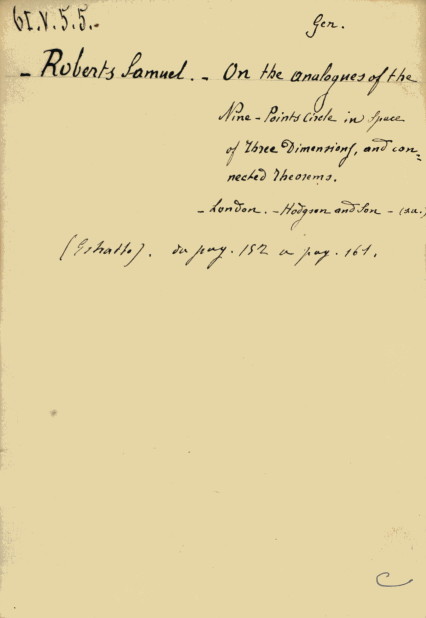 Gen.
- Roberts Samuel. - On the analogues of the
Nine-Points Circle in Space
of Three Dimensions, and con=
nected Theorems.
- London. - Hodgson and Son - (s.a.)
(Estratto). da pag. 152 a pag. 161.
C